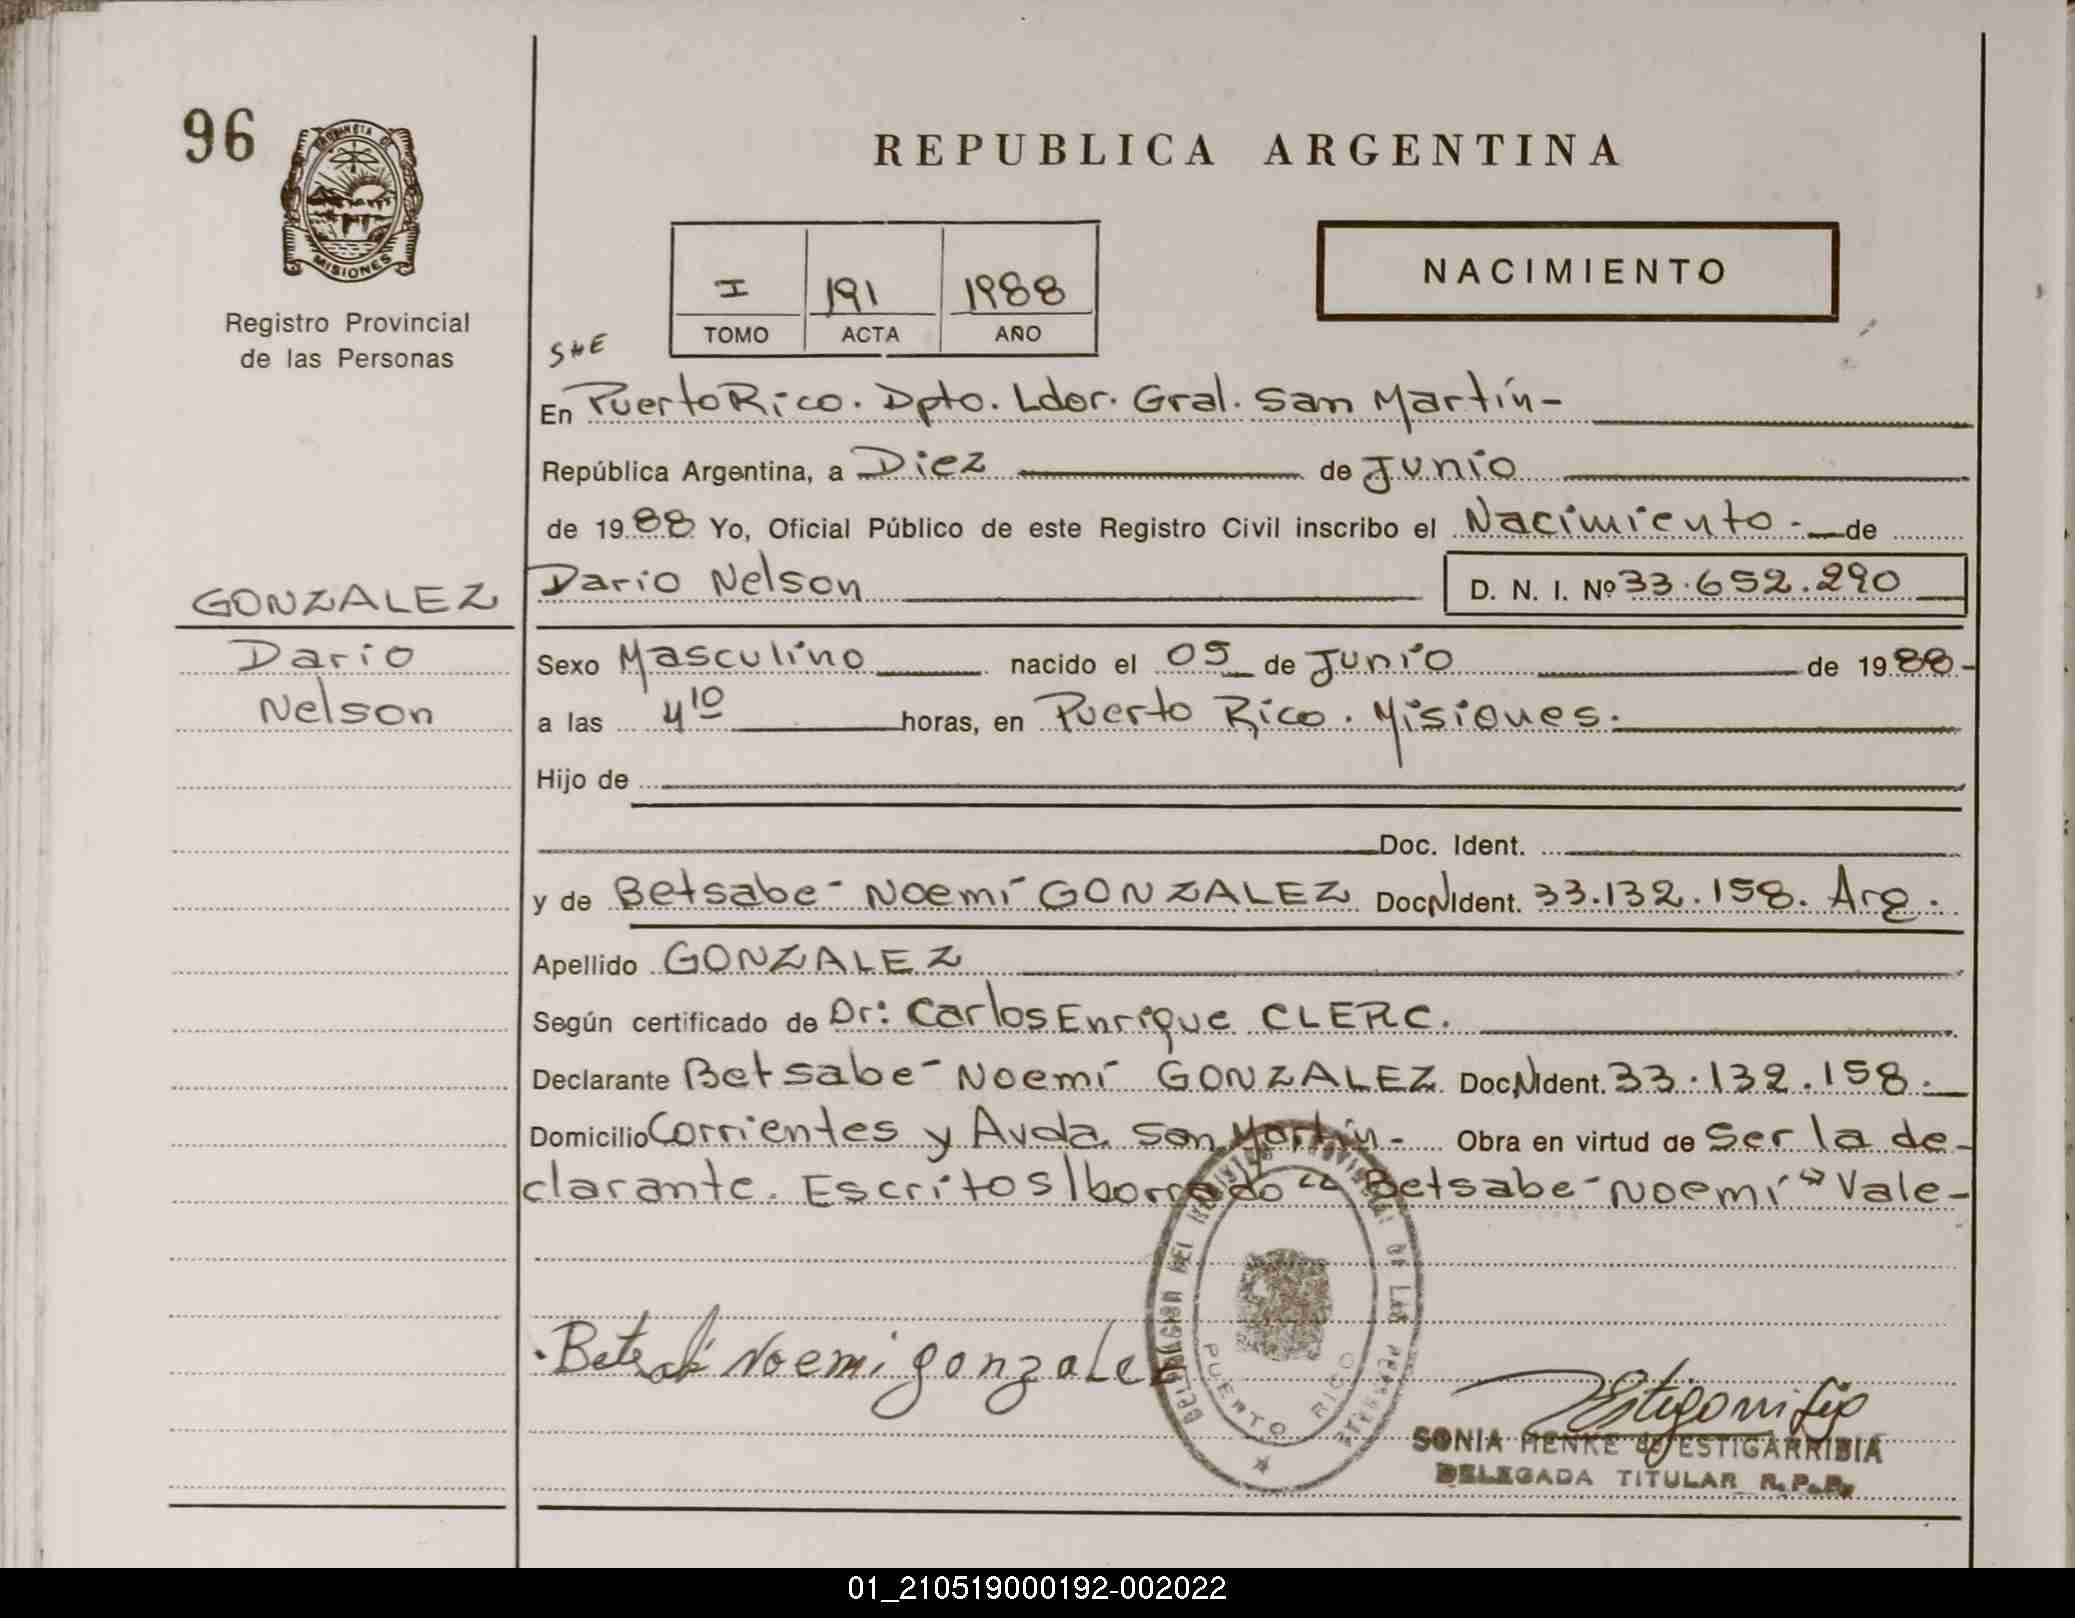 96
PROVINCIA DE
MISIONES
Registro Provincial
de las Personas
REPUBLICA ARGENTINA
NACIMIENTO
I 191 1988
TOMO ACTA AÑO
En Puerto Rico. Dpto. Ldor. Gral. San Martín-
República Argentina, a Diez de Junio
de 1988 Yo, Oficial Público de este Registro Civil inscribo el Nacimiento - de
Dario Nelson D. N. I. Nº 33.652.290
GONZALEZ
Dario
Nelson
Sexo Masculino nacido el 05 de Junio de 1988-
a las 4 10 horas, en Puerto Rico. Misiones.
Hijo de
Doc. Ident.
y de Betsabe- Noemí GONZALEZ Doc.N Ident. 33.132.158. Arg.
Apellido GONZALEZ
Según certificado de Dr: Carlos Enrique CLERC.
Declarante Betsabe- Noemí GONZALEZ Doc.N Ident. 33.132.158.
Domicilio Corrientes y Avda. San Martín- Obra en virtud de Ser la de-
clarante. Escritos/borrado "Betsabe- Noemí" Vale-
Betsabé Noemi gonzalez
DELEGACION DEL REGISTRO PROVINCIAL DE LAS PERSONAS
PUERTO RICO
SONIA HENKE de ESTIGARRIBIA
DELEGADA TITULAR R.P.P.
01_210519000192-002022